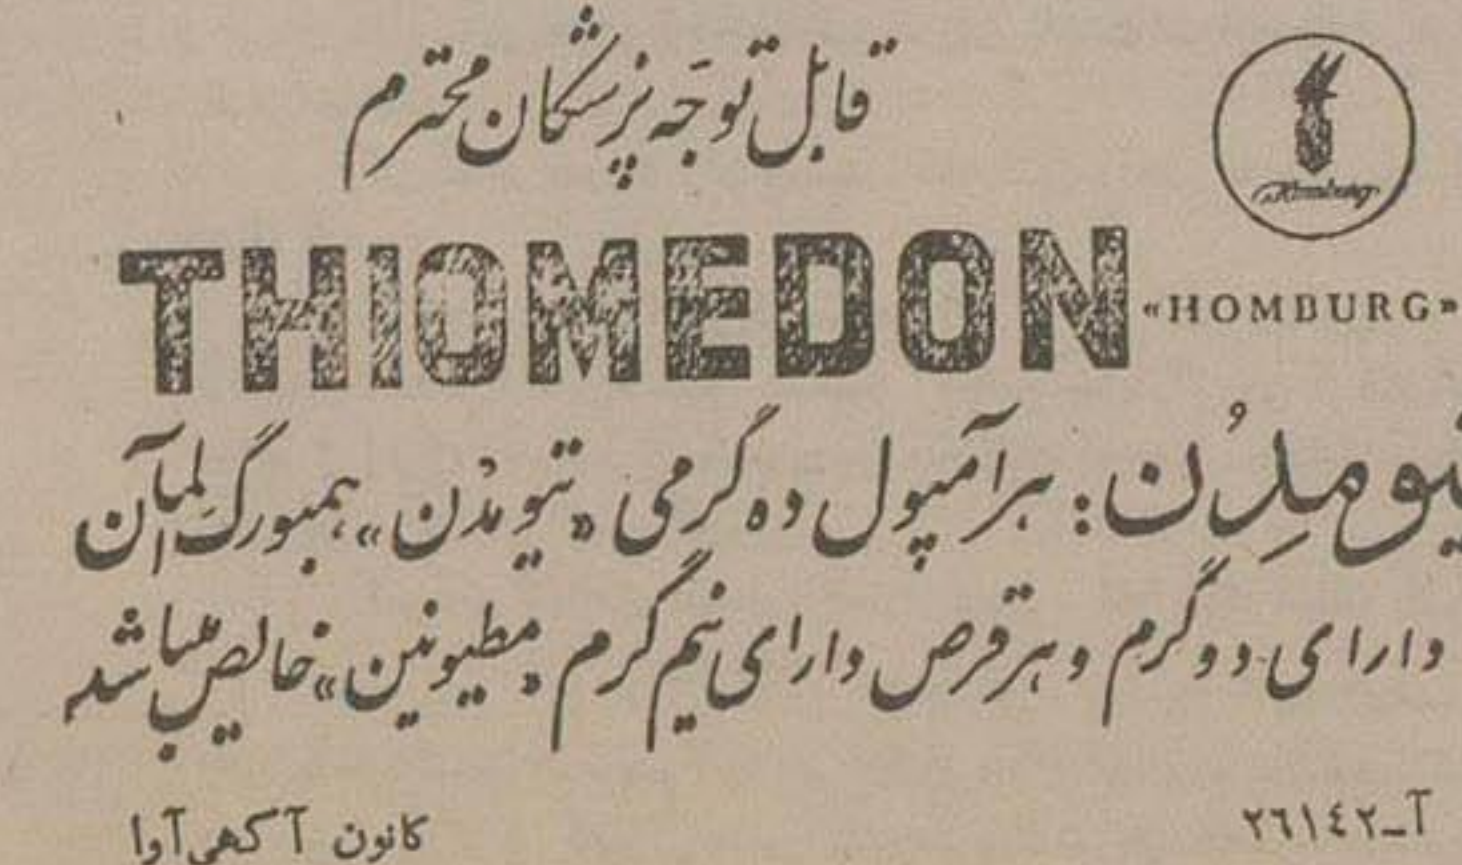 قابل توجه پزشکان محترم
Homburg
THIOMEDON «HOMBURG»
تیومدُن: هر آمپول ده گرمی «تیومدُن» همبورگ آلمان
دارای دو گرم و هر قرص دارای نیم گرم «مطیونین» خالص میباشد
آ-۲۶۱۴۲
کانون آگهی آوا